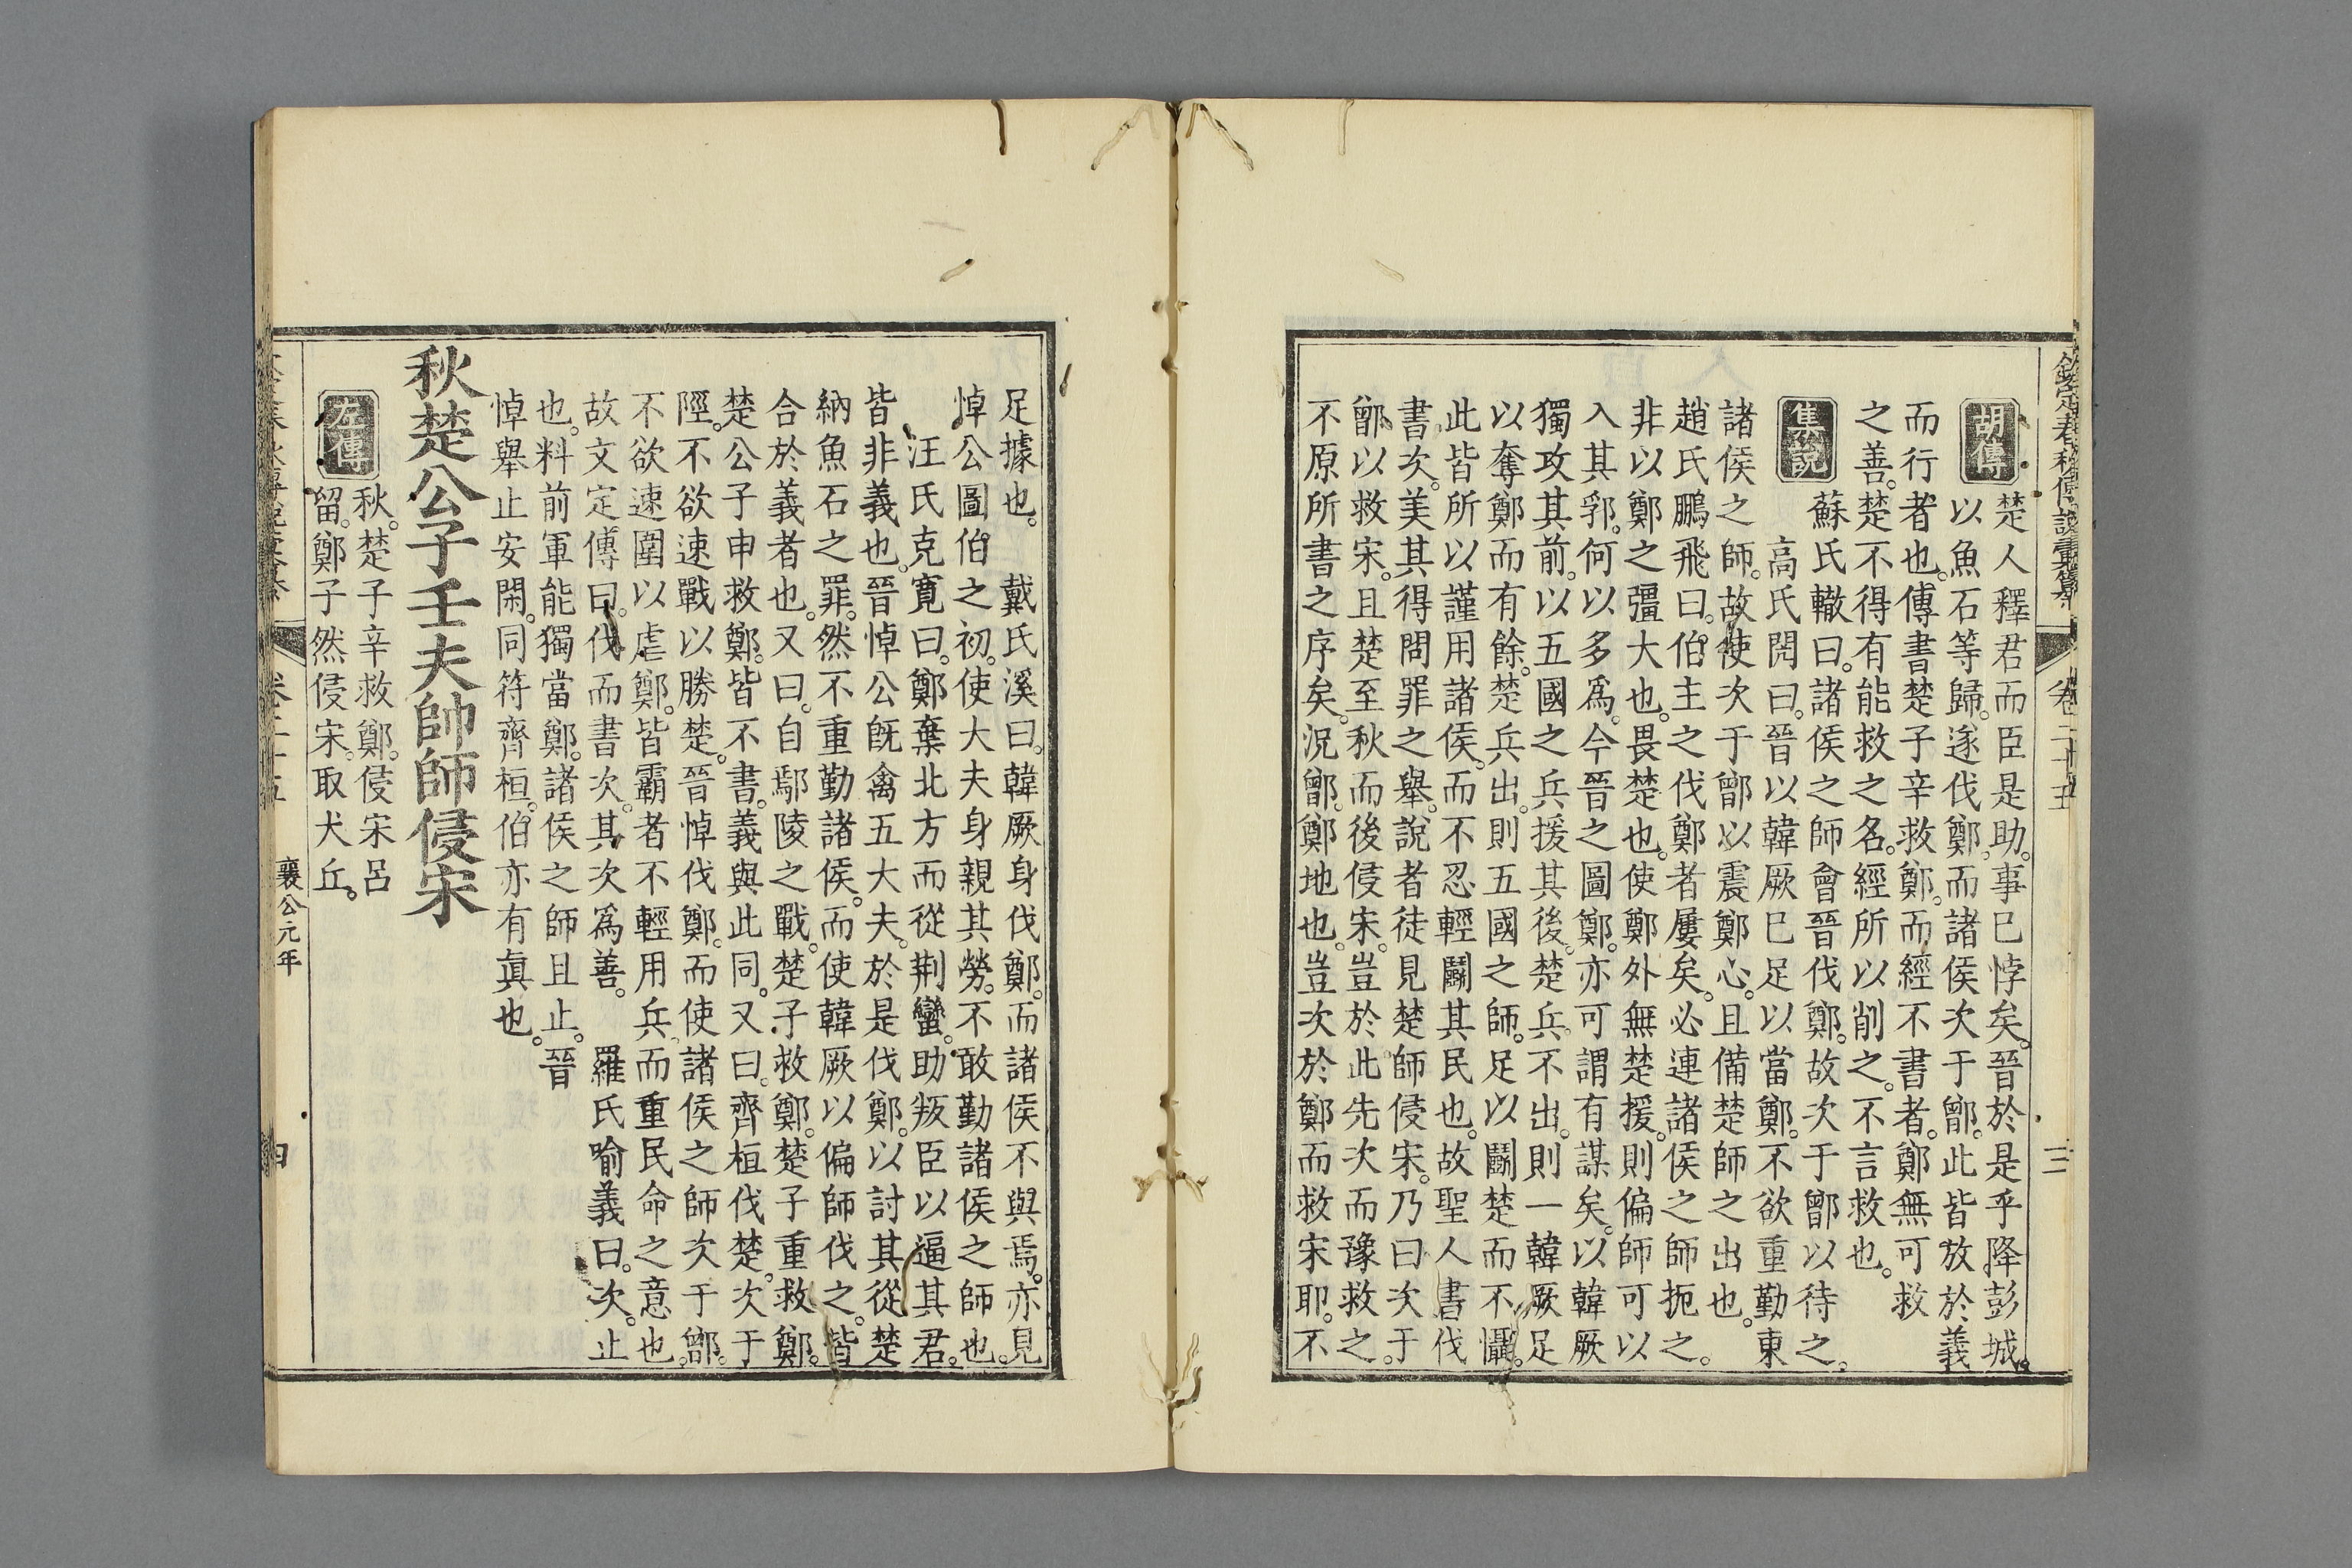 欽定春秋傳說彙纂 卷二十五 三
胡傳
楚人釋君而臣是助。事已悖矣。晉於是乎降彭城。
以魚石等歸。遂伐鄭。而諸侯次于鄫。此皆放於義
而行者也。傳書楚子辛救鄭。而經不書者。鄭無可救
之善。楚不得有能救之名。經所以削之。不言救也。
集說
蘇氏轍曰。諸侯之師會晉伐鄭。故次于鄫以待之。
高氏閌曰。晉以韓厥已足以當鄭。不欲重勤東
諸侯之師。故使次于鄫以震鄭心。且備楚師之出也。
趙氏鵬飛曰。伯主之伐鄭者屢矣。必連諸侯之師扼之。
非以鄭之彊大也。畏楚也。使鄭外無楚援。則偏師可以
入其郛。何以多爲。今晉之圖鄭。亦可謂有謀矣。以韓厥
獨攻其前。以五國之兵援其後。楚兵不出。則一韓厥足
以奪鄭而有餘。楚兵出。則五國之師。足以鬭楚而不懾。
此皆所以謹用諸侯。而不忍輕鬭其民也。故聖人書伐
書次。美其得問罪之舉。說者徒見楚師侵宋。乃曰次于
鄫以救宋。且楚至秋而後侵宋。豈於此先次而豫救之。
不原所書之序矣。況鄫。鄭地也。豈次於鄭而救宋耶。不
足據也。 戴氏溪曰。韓厥身伐鄭。而諸侯不與焉。亦見
悼公圖伯之初。使大夫身親其勞。不敢勤諸侯之師也。
汪氏克寬曰。鄭棄北方而從荆蠻。助叛臣以逼其君。
皆非義也。晉悼公既禽五大夫。於是伐鄭。以討其從楚
納魚石之罪。然不重勤諸侯。而使韓厥以偏師伐之。皆
合於義者也。又曰。自鄢陵之戰。楚子救鄭。楚子重救鄭。
楚公子申救鄭。皆不書。義與此同。又曰。齊桓伐楚。次于
陘。不欲速戰以勝楚。晉悼伐鄭。而使諸侯之師次于鄫。
不欲速圍以虐鄭。皆霸者不輕用兵。而重民命之意也。
故文定傳曰。伐而書次。其次爲善。 羅氏喻義曰。次。止
也。料前軍能獨當鄭。諸侯之師且止。晉
悼舉止安閑。同符齊桓。伯亦有眞也。
秋楚公子壬夫帥師侵宋
左傳
秋。楚子辛救鄭。侵宋呂
留。鄭子然侵宋。取犬丘。
襄公元年 四